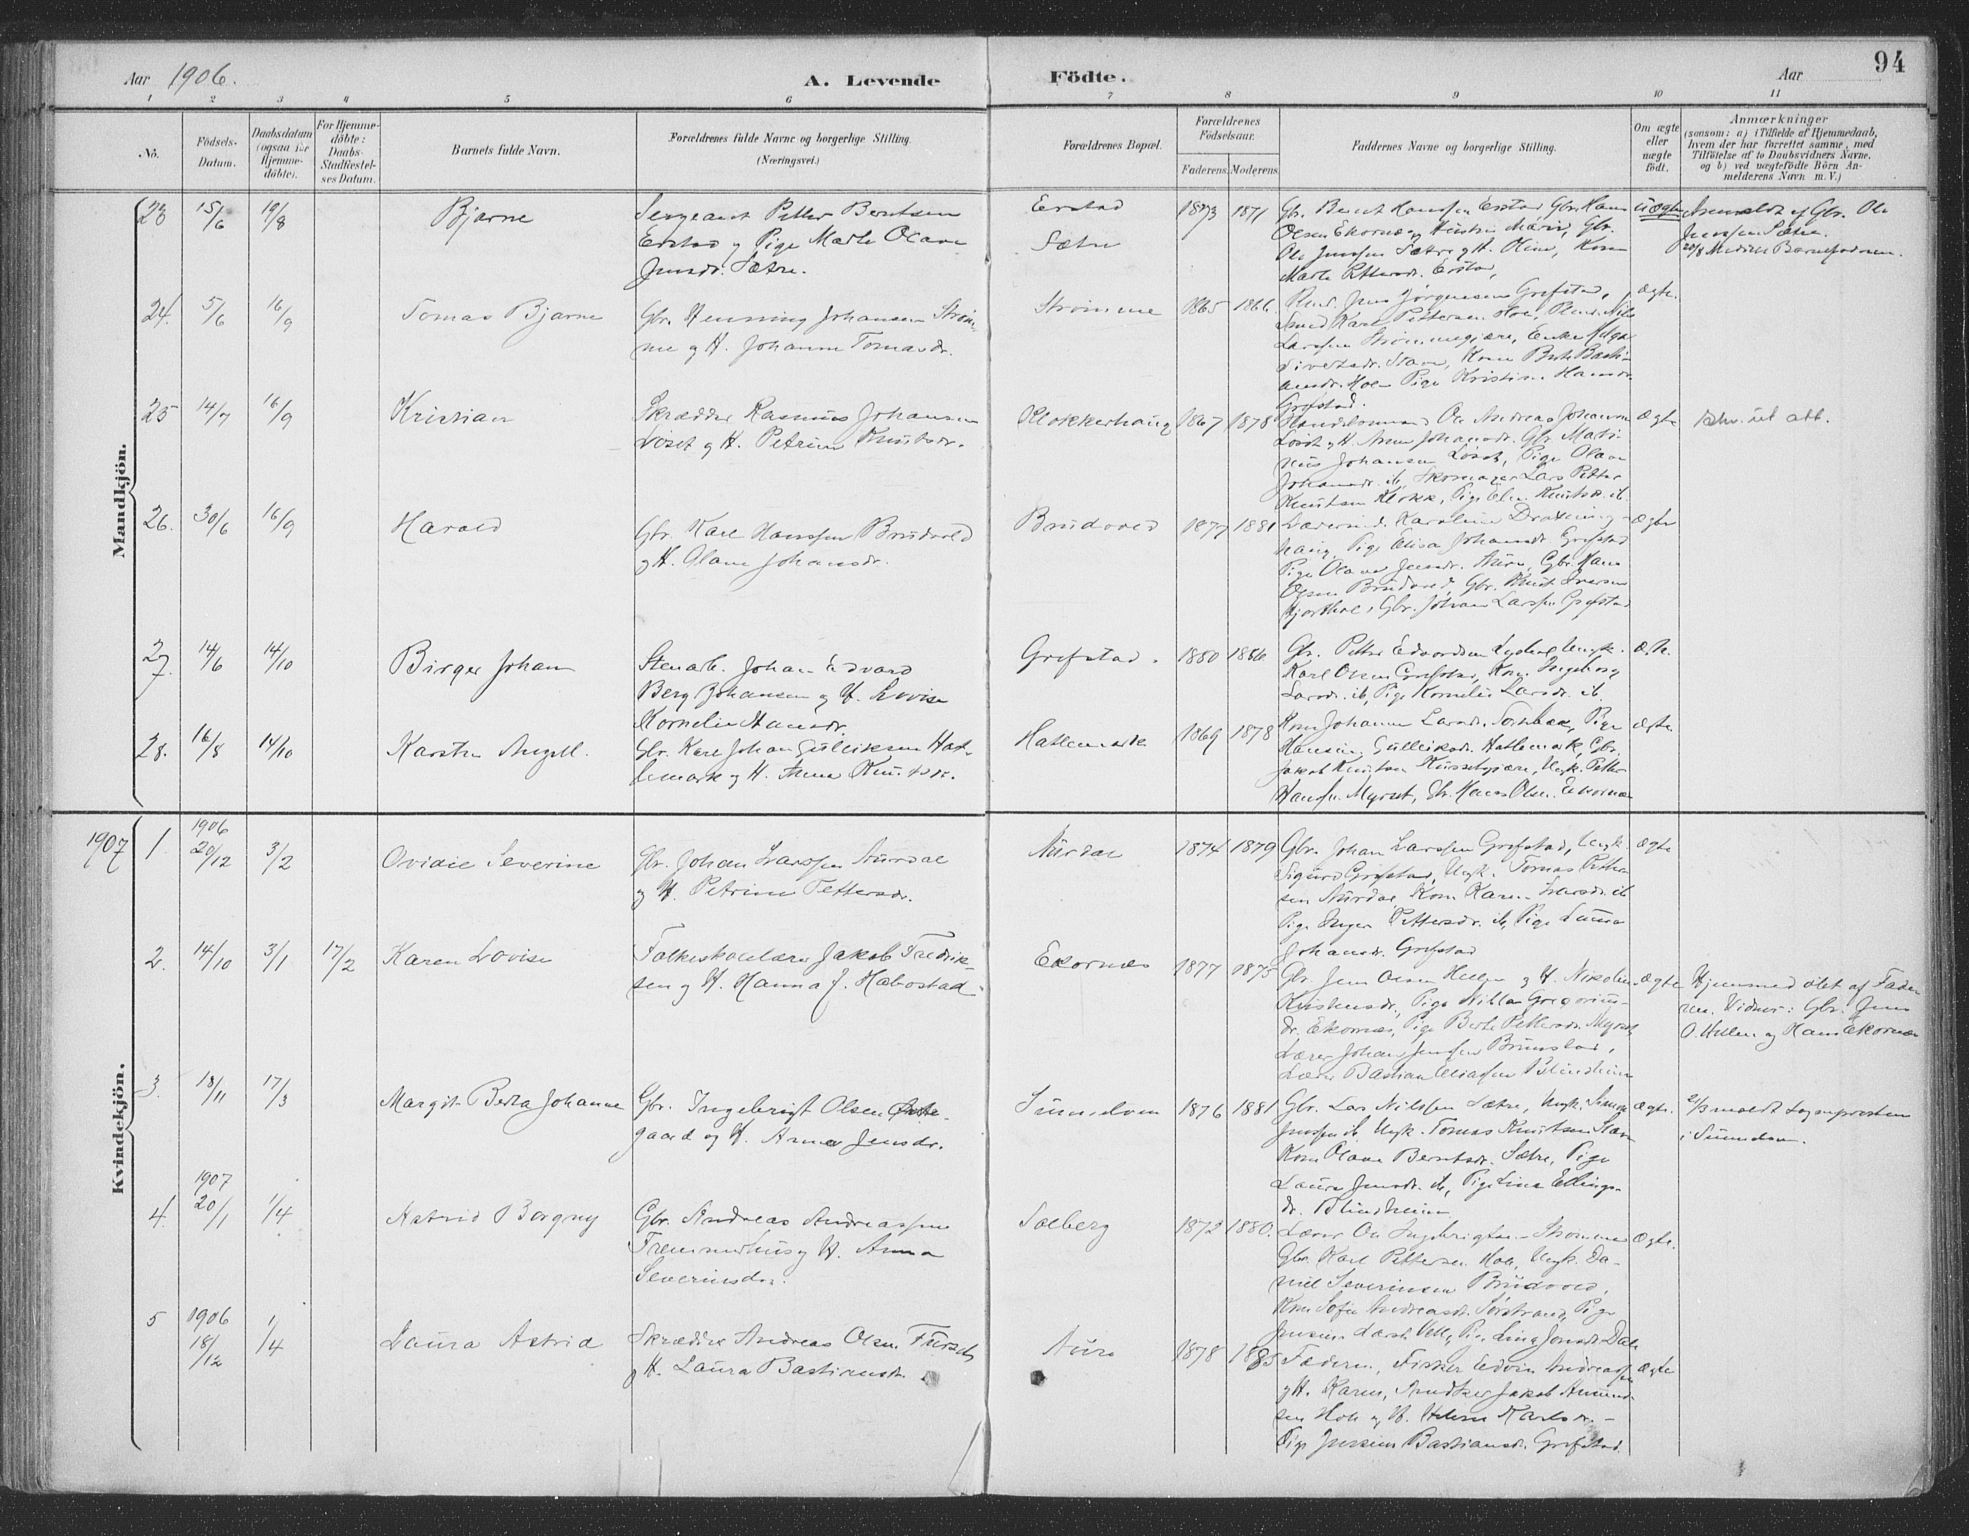 Aar 1906.
A. Levende
Födte.
Aar
94
1 2 3 4 5 6 7 8 9 10 11
No.
Födsels-
Datum.
Daabsdatum
(ogsaa for
Hjemme-
döbte).
For Hjemme-
döbte:
Daabs-
Stadfæstel-
ses Datum.
Barnets fulde Navn.
Forældrenes fulde Navne og borgerlige Stilling.
(Næringsvei.)
Forældrenes Bopæl.
Forældrenes
Födselsaar.
Faderens. Moderens.
Faddernes Navne og borgerlige Stilling.
Om ægte
eller
uægte
födt.
Anmærkninger
(saasom: a) i Tilfælde af Hjemmedaab,
hvem der har forrettet samme, med
Tilföielse af to Daabsvidners Navne,
og b) ved uægtefödte Börn An-
melderens Navn m. V.)
Mandkjön.
23 15/6 19/8 Bjarne
Sergeant Petter Berntsen
Erstad og Pige Marte Olave
Jensdr. Sætre.
Erstad
Sætre
1873 1871
Gbr. Bernt Hanssen Erstad, Gbr. Hans
Olsen Ekornes og Hustru Marie, Gbr.
Ole Jenssen Sætre og H. Oline, Kone
Marte Pettersdr. Erstad,
uægte
Anmeldt af Gbr. Ole
Jenssen Sætre.
20/8 Meddelt Barnefaderen.
24. 5/6 16/9 Tomas Bjarne
Gbr. Henning Johansen Strøm-
me og H. Johanne Tomasdr.
Strømme
1865 1866.
Jens Jørgensen Grefstad,
Smed Karl Pettersen Hole,
Larssen Strømmegjære, Enke
Sivertsdr. Stave, Kone Berte Basti-
ansdr. Hole Pige Kristine Hansdr.
Grefstad.
ægte.
25 14/7 16/9 Kristian
Skrædder Rasmus Johansen
Løset og H. Petrine Knutsdr.
Klokkerhaug
1867 1878
Handelsmand Ole Andreas Johansen
Løset og H. Anne Johansdr. Gbr. Marti-
nus Johansen Løset, Pige Olave
Johansdr. ib, Skomager Lars Petter
Knutsen Klokk, Pige Elen Knutsdr. ib.
ægte
26. 30/6 16/9 Harald
Gbr. Karl Hanssen Brudvold
og H. Olave Johansdr.
Brudvold
1877 1881
Karoline Dravning-
haug, Pige Elisa Johansdr. Grefstad
Pige Olave Jensdr. Aure, Gbr. Hans
Olsen Brudvold, Gbr. Knut Iversen
Hjorthol, Gbr. Johan Larssen Grefstad
ægte
27. 14/6 14/10 Birger Johan
Stenarb. Johan Edvard
Berg Johansen og H. Lovise
Kornelie Hansdr.
Grefstad.
1880 1886
Gbr. Petter Edvardsen Ungk.
Karl Olsen Grefstad, Kone Ingeborg
Larsdr. ib, Pige Kornelie Larsdr. ib.
ægte.
28. 16/8 14/10 Karsten Angell.
Gbr. Karl Johan Gulliksen Hat-
lemark og H. Anne Knutsdr.
Hatlemark
1869 1878
Kone Johanne Larsdr. Pige
Hansine Gulliksdr. Hatlemark, Gbr.
Jakob Knutsen Kursetgjære, Ungk. Petter
Hanssen Myrset, Gbr. Hans Olsen Ekornes
ægte
Kvindekjön.
1907 1. 1906 20/12 3/2 Ovidie Severine
Gbr. Johan Larssen Aurdal
og H. Petrine Pettersdr.
Aurdal
1874 1879
Gbr. Johan Larssen Grefstad, Ungk.
Sigurd Grefstad, Ungk. Tomas Petter-
sen Aurdal, Kone Karen Larsdr. ib
Pige Inger Pettersdr. ib, Pige Laura
Johansdr. Grefstad
ægte
2. 14/10 3/1 17/2 Karen Lovise
Folkeskolelærer Jakob Fredrik-
sen og H. Hanna J. Habostad
Ekornes
1877 1875
Gbr. Jens Olsen Hellen og H. Nikoline
Kristensdr., Pige Gregorius-
dr. Ekornes, Pige Berte Pettersdr. Myrset,
Lærer Johan Jenssen Brunstad,
Lærer Bastian Eliassen Blindheim
ægte
Hjemmedøbt af Fade-
ren. Vidner: Gbr. Jens
O. Hellen og Hans Ekornes
3. 18/11 17/3 Margit Berta Johanne
Gbr. Ingebrigt Olsen Øste-
gaard og H. Anna Jensdr.
Sunndam
1876 1881
Gbr. Lars Nilssen Sætre, Ungk. Simon
Jenssen ib, Ungk. Tomas Knutsen Stave
Kone Olave Berntsdr. Sætre, Pige
Laura Jensdr. ib, Pige Lina Ellings-
dr. Blindheim
ægte.
21/3 meldt Sognepresten
i Sunndam.
4. 1907 20/1 1/4 Astrid Borgny
Gbr. Andreas Andreassen
Fremmerhus og H. Anna
Severinsdr.
Solberg
1872 1880.
Lærer Ole Ingebrigtsen Strømme
Gbr. Karl Pettersen Hole, Ungk. Da-
niel Severinsen Brudvold,
Kone Sofie Andreasdr. Sørstrand, Pige
Jensine Larsdr. Velle, Pige Lina Jonsdr. Dale
ægte.
5 1906 18/12 1/4 Laura Astrid
Skrædder Andreas Olsen Furset
og H. Laura Bastiansdr.
Aure
1878 1885
Faderen, Fisker Edvin Andreassen
og H. Karen, Jakob Amund-
sen Hole og H. Helene Karlsdr.
Pige Jensine Bastiansdr. Grefstad.
ægte